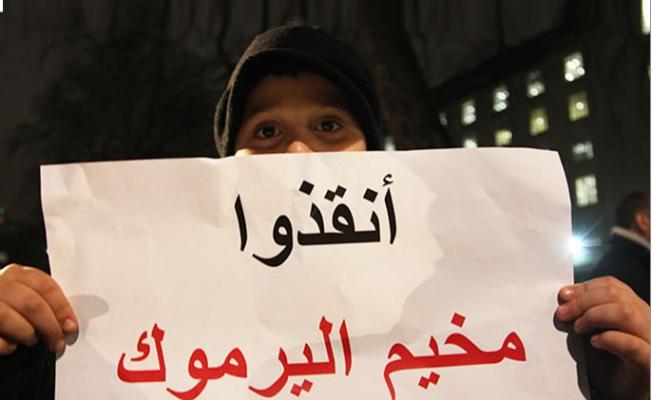 أنقذوا
مخيم اليرموك